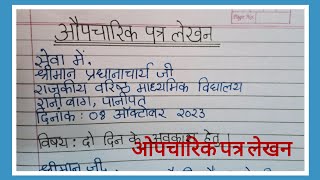 औपचारिक पत्र लेखन
सेवा में,
श्रीमान प्रधानाचार्य जी
राजकीय वरिष्ठ माध्यमिक विद्यालय
रानी बाग, पानीपत
दिनांक: 04 अक्टोबर 2023
विषय: दो दिन के अवकाश हेतु ।
ओपचारिक पत्र लेखन
श्रीमान जी,